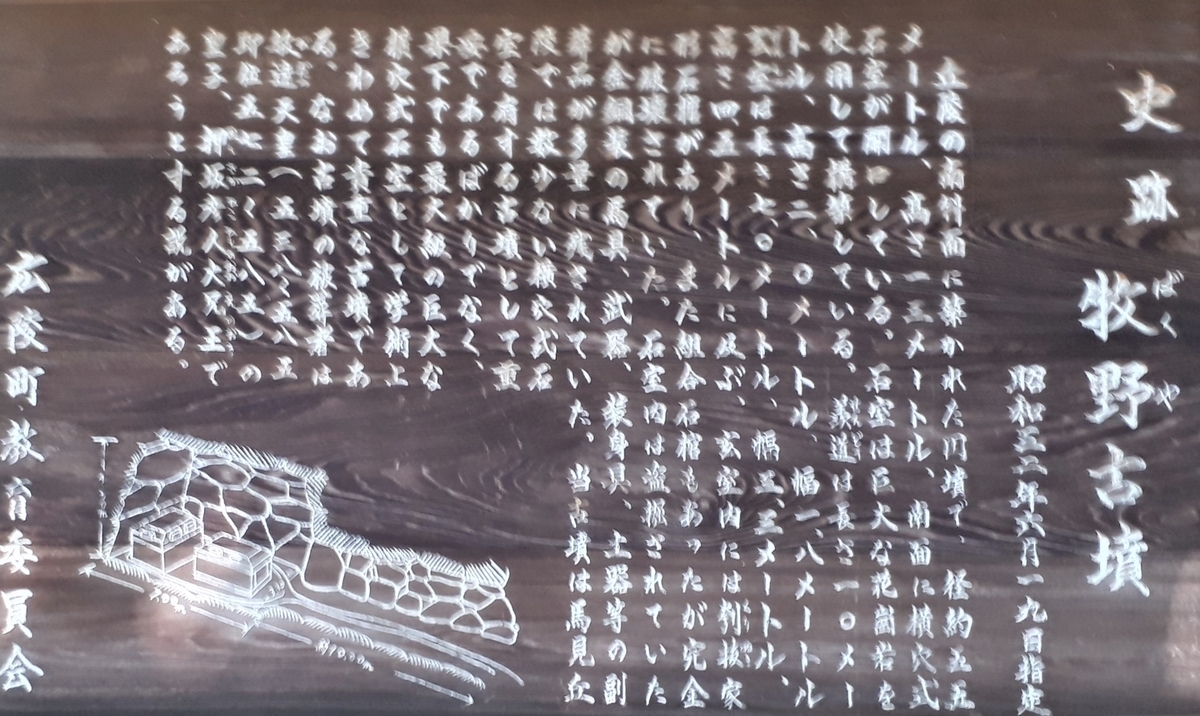 史跡 牧野古墳
ばくや
昭和三二年六月一九日指定
丘陵の南斜面に築かれた円墳で、径約五五
メートル、高さ一三メートル、南面に横穴式
石室が開口している。石室は巨大な花崗岩を
使用して構築している。羨道は長さ一〇メー
トル、高さ二、〇メートル、幅一、八メートル
玄室は長さ七、〇メートル、幅三、三メートル、
高さ四、五メートルに及ぶ、玄室内には刳抜家
形石棺があり、また組合石棺もあったが完全
に破壊されていた。石室内は盗掘されていた
が金銅装の馬具、武器、装身具、土器等の副
葬品が多量に残されていた。当古墳は馬見丘
陵では数少ない横穴式石
室を有する古墳として重
要であるばかりでなく、
県下でも最大級の巨大な
横穴式石室として学術上
きわめて貴重な古墳であ
る、なお古墳の被葬者は
敏達天皇(五三八〜五八五
即位五七二〜五八五)の
皇子、押坂彦人大兄王で
あろうとする説がある。
約10.00m
広陵町教育委員会